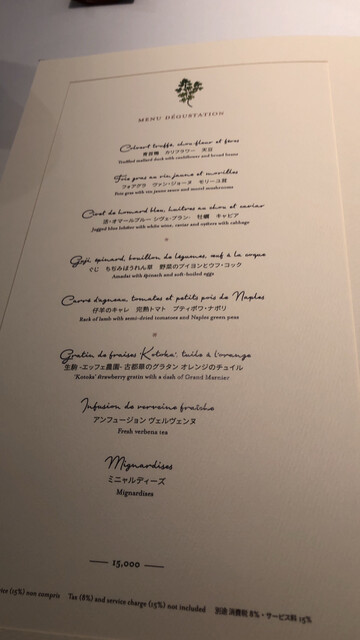 MENU DÉGUSTATION
Colvert truffé, chou-fleur et fèves
青首鴨 カリフラワー 天豆
Truffled mallard duck with cauliflower and broad beans
Foie gras au vin jaune et morilles
フォアグラ ヴァン・ジョーヌ モリーユ茸
Foie gras with vin jaune sauce and morel mushrooms
Civet de homard bleu, huîtres au chou et caviar
活・オマールブルー シヴェ・ブラン・ 牡蠣 キャビア
Jugged blue lobster with white wine, caviar and oysters with cabbage
*
Guji, épinard, bouillon de légumes, œuf à la coque
ぐじ ちぢみほうれん草 野菜のブイヨンとウフ・コック
Amadai with spinach and soft-boiled eggs
Carré d'agneau, tomates et petits pois de Naples
仔羊のキャレ 完熟トマト プティポワ・ナポリ
Rack of lamb with semi-dried tomatoes and Naples green peas
*
Gratin de fraises "Kotoka", tuile à l'orange
生駒 -エッフェ農園- 古都華のグラタン オレンジのチュイル
'Kotoka' strawberry gratin with a dash of Grand Marnier
Infusion de verveine fraîche
アンフュージョン ヴェルヴェンヌ
Fresh verbena tea
Mignardises
ミニャルディーズ
Mignardises
15,000
(15%) non compris Tax (8%) and service charge (15%) not included 別途 消費税 8%・サービス料 15%